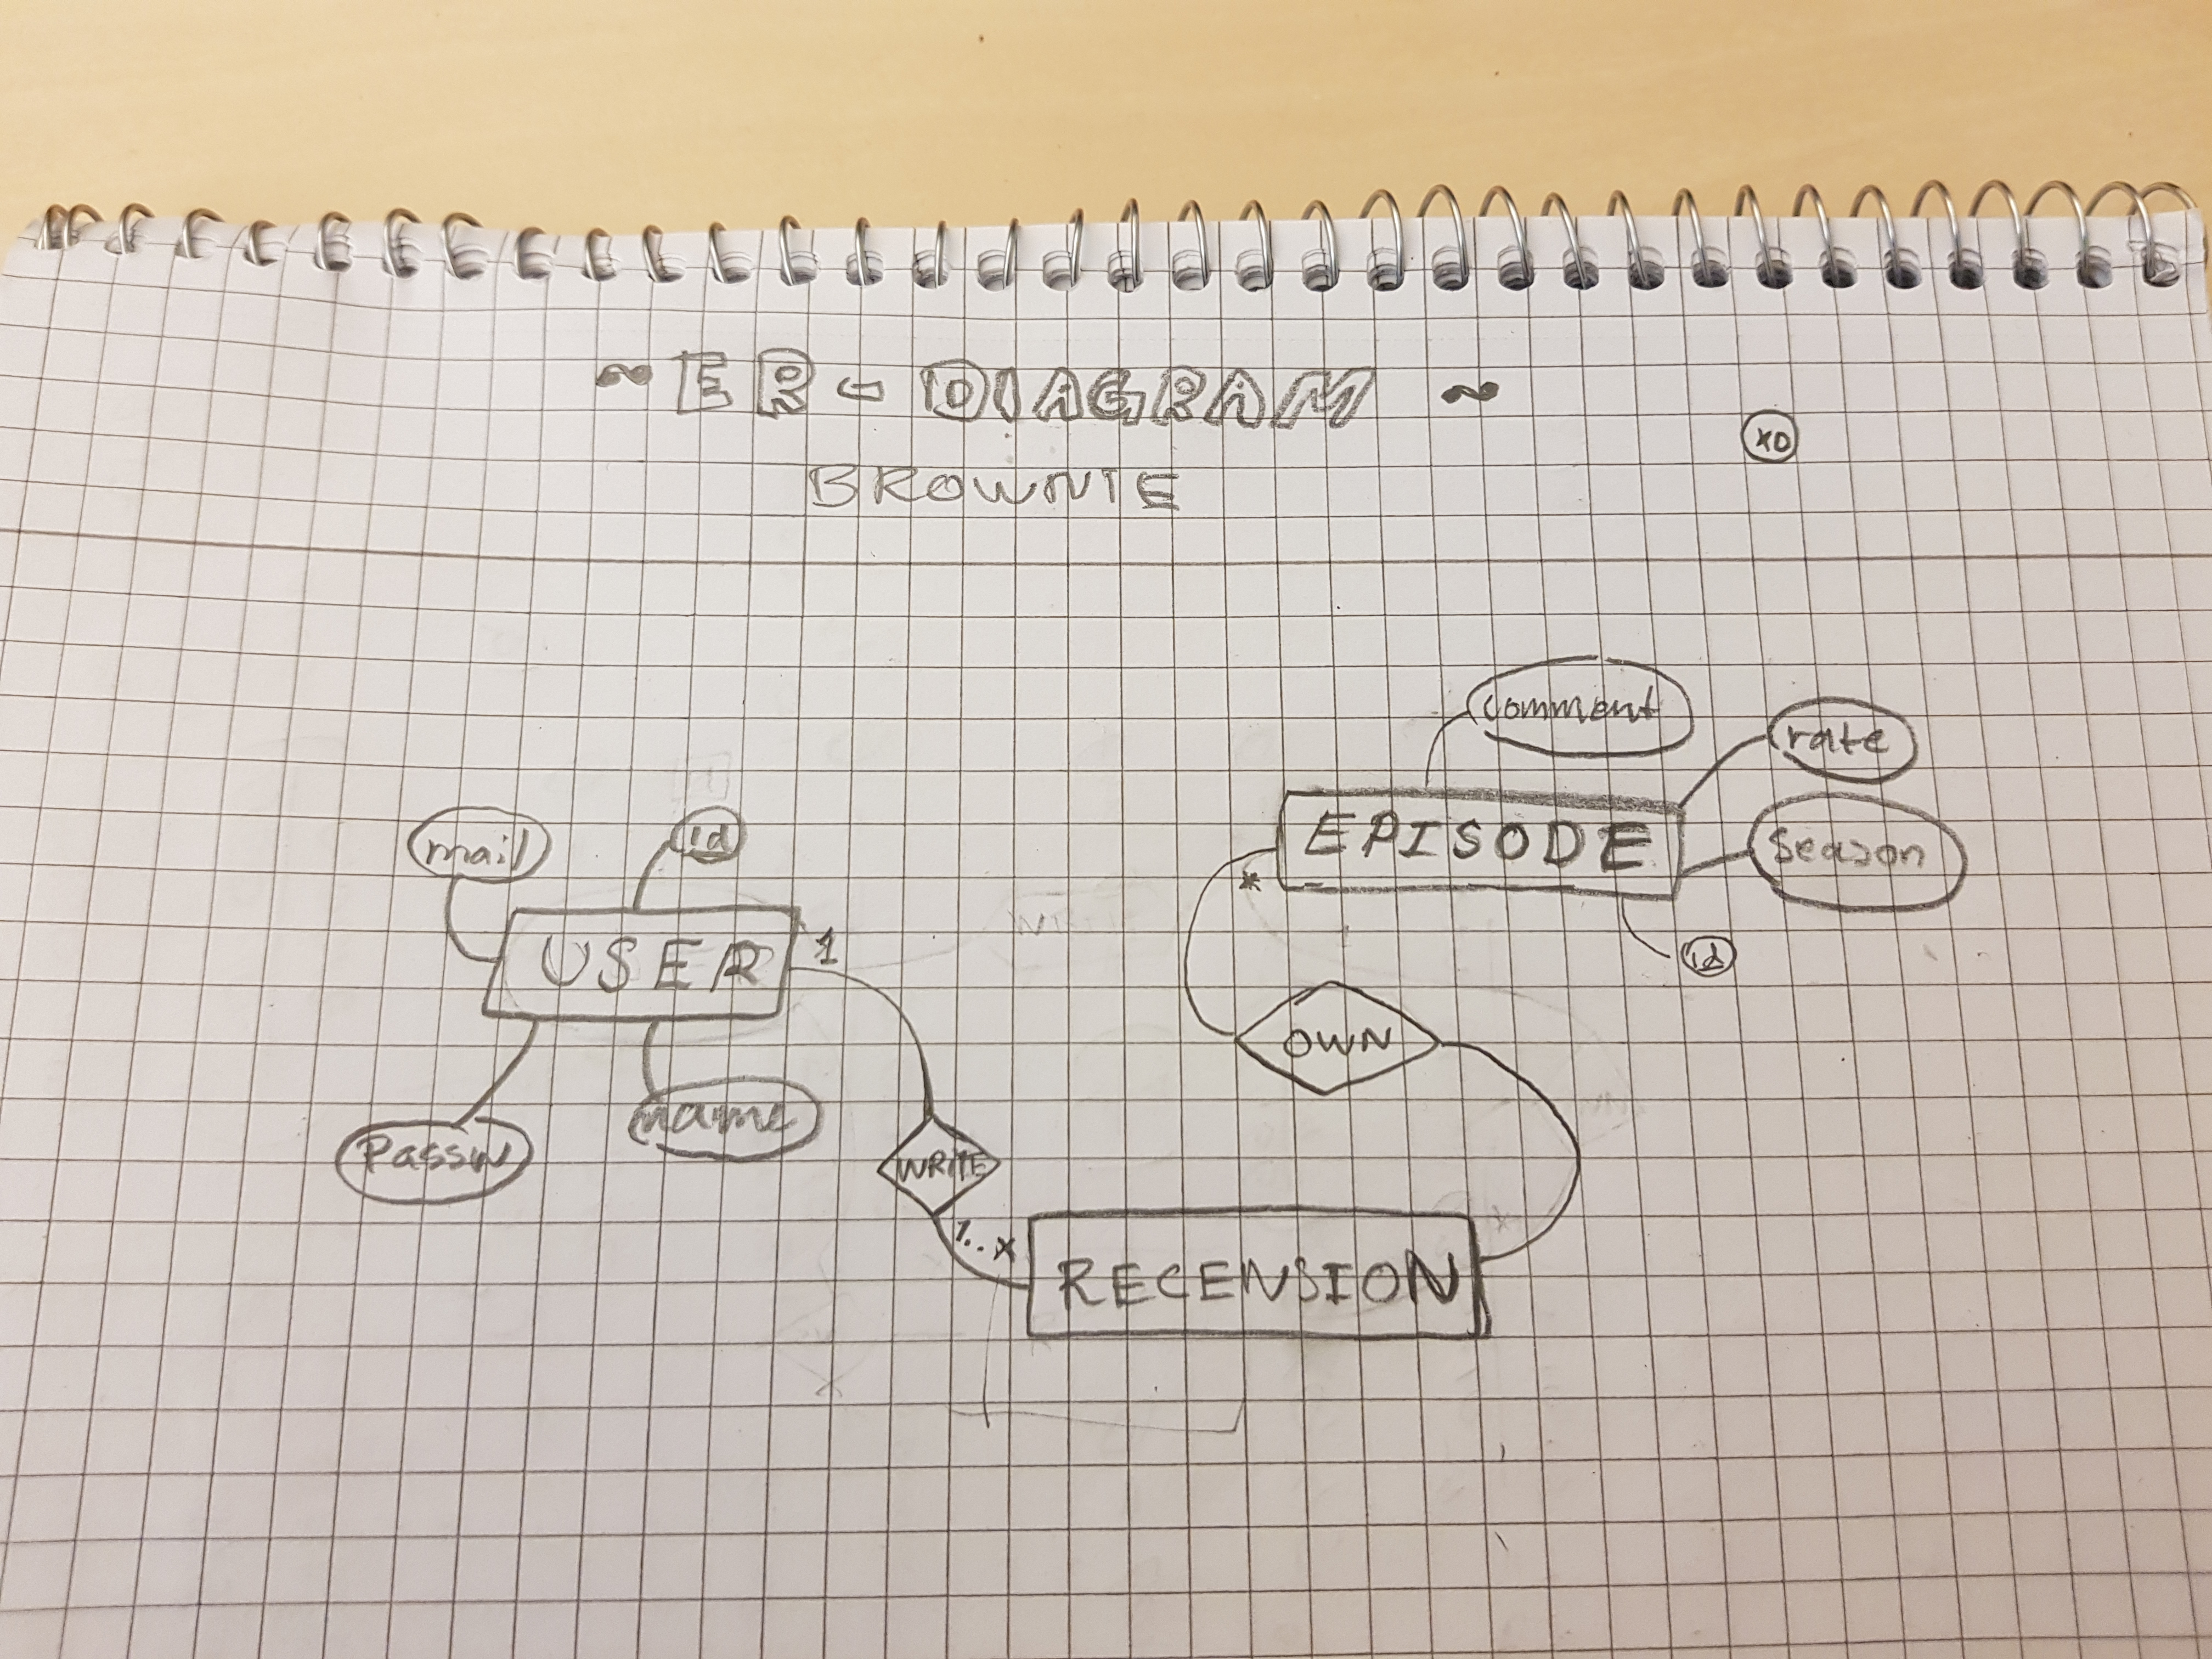 ~ ER-DIAGRAM ~
XD
BROWNIE
comment
rate
EPISODE
season
*
id
mail
id
USER
1
Passw
name
OWN
WRITE
1..*
RECENSION